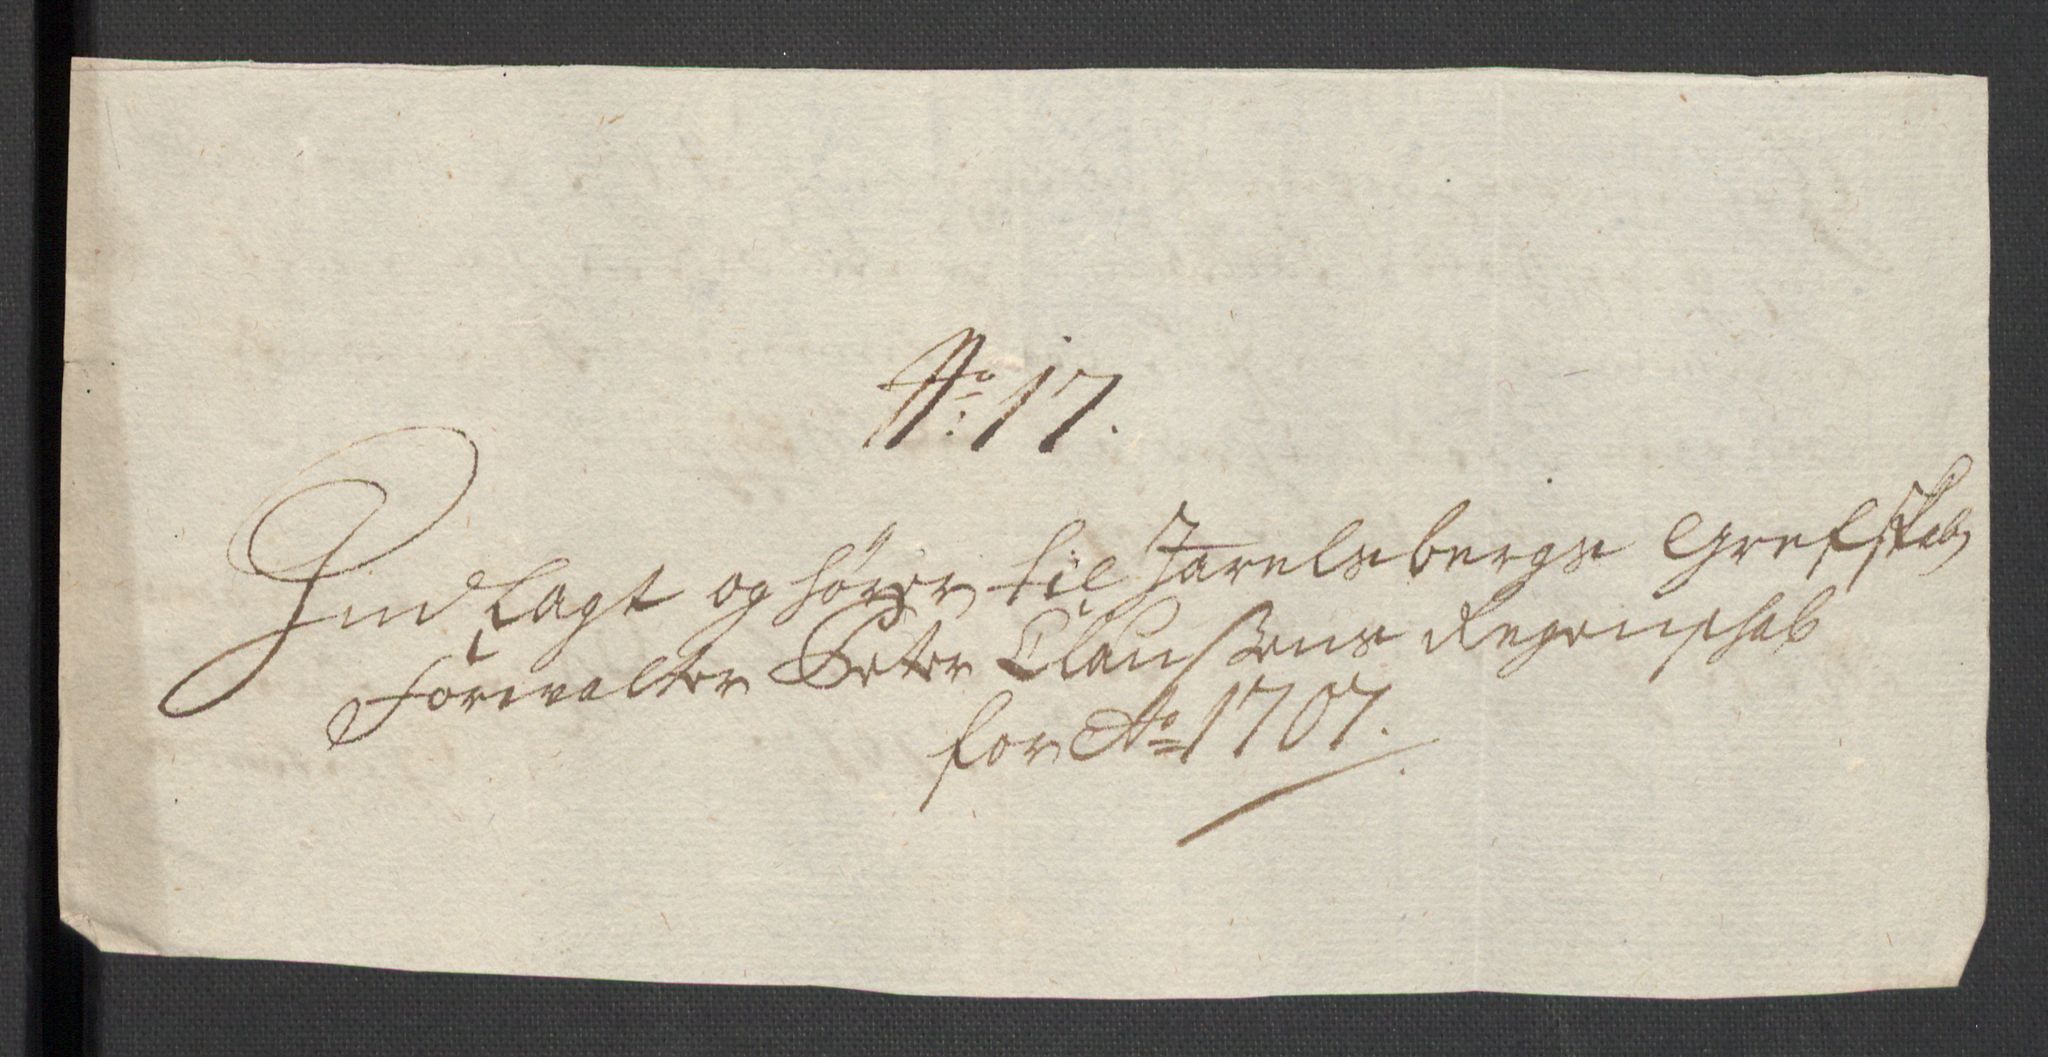 No: 17.
Indlagt og hører til Jarelsbergs Grefskab
Forvalter Peter Claußens Regenschab
for Ao 1707.